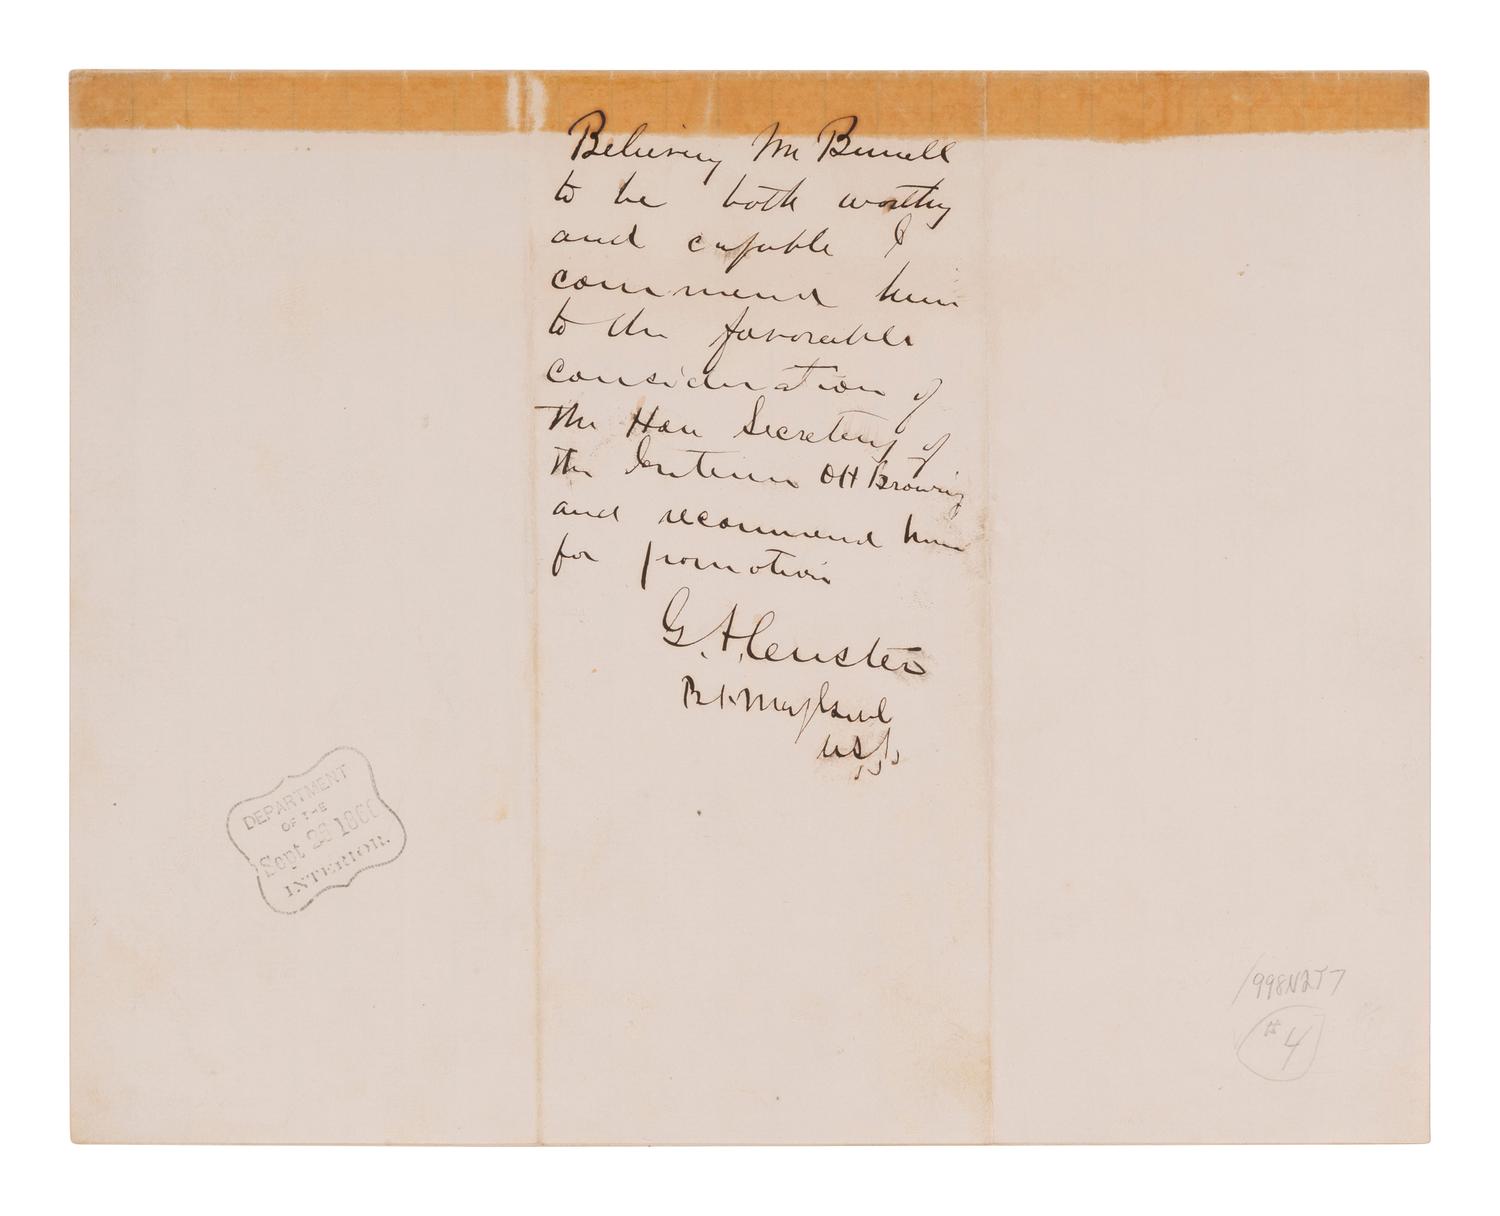 Believing Mr Burrell
to be both worthy
and capable I
commend him
to the favorable
consideration of
the Hon Secretary of
the Interior OH Browning
and recommend him
for promotion
G. A. Custer
Bt Maj Genl
USA
DEPARTMENT
OF THE
Sept 28 1866
INTERIOR.
#4